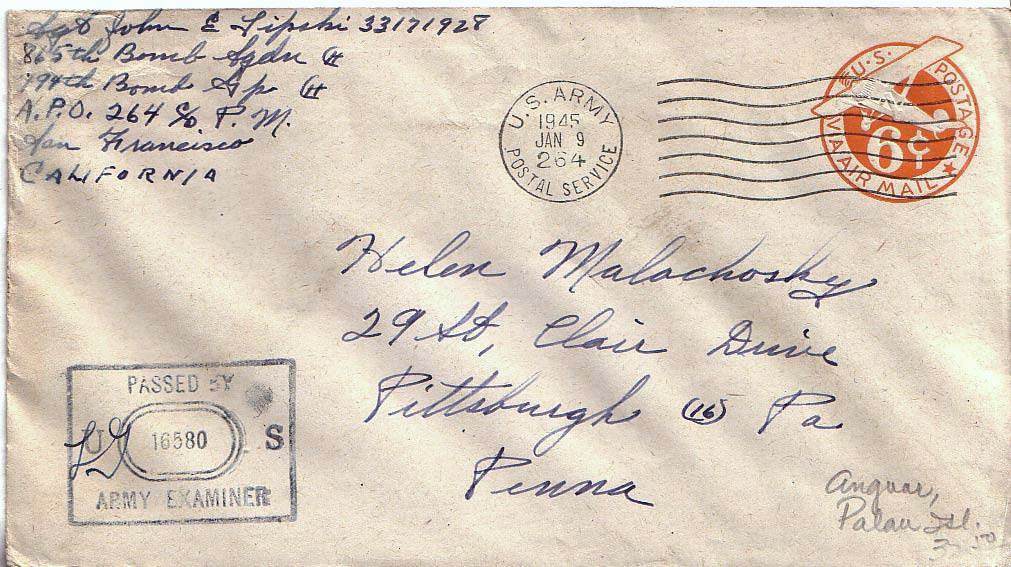 Sgt John E Lipski 33171928
865th Bomb Sqdn (H)
494th Bomb Gp (H)
A.P.O. 264 c/o P.M.
San Francisco
CALIFORNIA
U.S. ARMY
1945
JAN 9
264
POSTAL SERVICE
U.S. POSTAGE
6¢
VIA AIR MAIL
Helen Malachosky
29 St, Clair Drive
Pittsburgh (16) Pa
Penna
PASSED BY
U 16580 S
ARMY EXAMINER
Anguar,
Palau Isl.